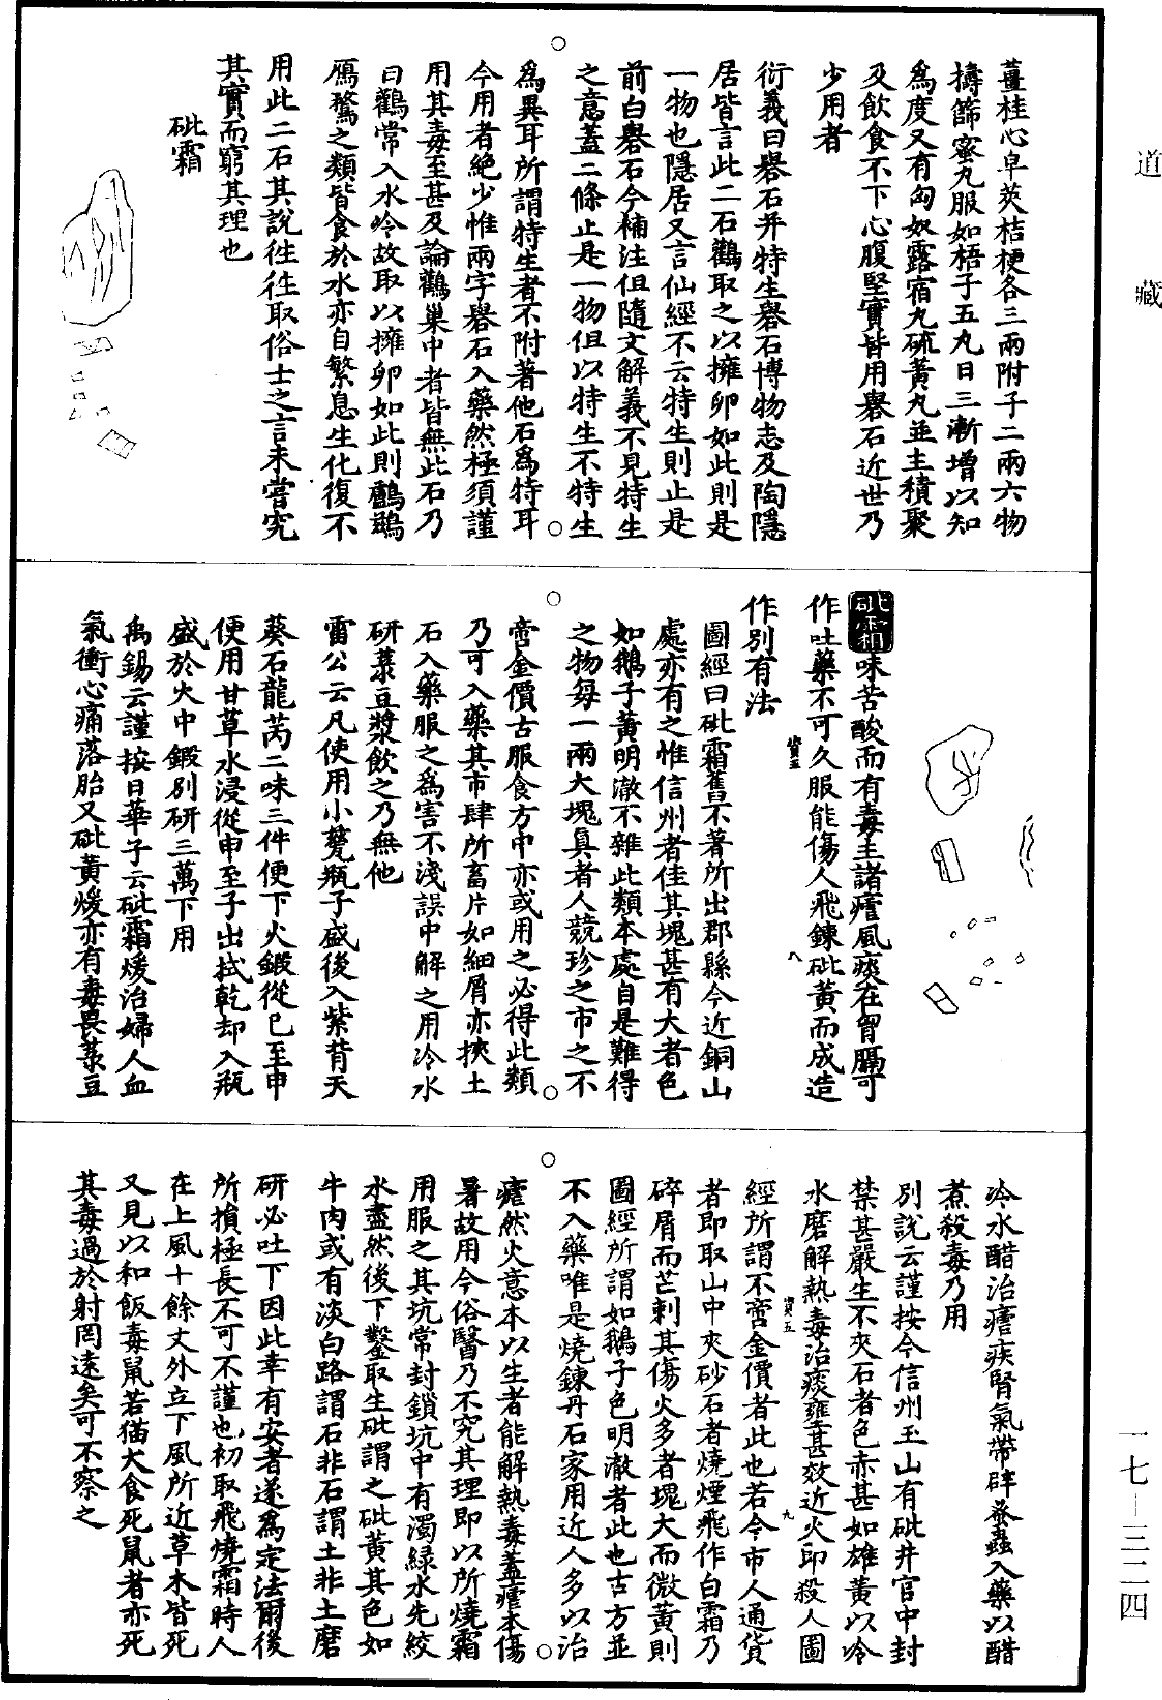 道藏
薑桂心皁莢桔梗各三兩附子二兩六物
擣篩蜜丸服如梧子五丸日三漸增以知
爲度又有匈奴露宿丸硫黃丸並主積聚
及飲食不下心腹堅實皆用礜石近世乃
少用者
衍義曰礜石并特生礜石博物志及陶隱
居皆言此二石鸛取之以擁卵如此則是
一物也隱居又言仙經不云特生則止是
前白礜石今補注但隨文解義不見特生
之意蓋二條止是一物但以特生不特生
爲異耳所謂特生者不附著他石爲特耳
今用者絶少惟兩字礜石入藥然極須謹
用其毒至甚及論鸛巢中者皆無此石乃
曰鸛常入水冷故取以擁卵如此則鸕鷀
鴈鶩之類皆食於水亦自繁息生化復不
用此二石其說徃徃取俗士之言未嘗究
其實而窮其理也
砒霜
砒霜味苦酸而有毒主諸瘧風痰在胷膈可
作吐藥不可久服能傷人飛鍊砒黃而成造
作別有法
圖經曰砒霜舊不著所出郡縣今近銅山
處亦有之惟信州者佳其塊甚有大者色
如鵝子黃明澈不雜此類本處自是難得
之物每一兩大塊真者人競珍之市之不
啻金價古服食方中亦或用之必得此類
乃可入藥其市肆所畜片如細屑亦挾土
石入藥服之爲害不淺誤中解之用冷水
研菉豆漿飲之乃無他
雷公云凡使用小甆瓶子盛後入紫背天
葵石龍芮二味三件便下火鍛從巳至申
便用甘草水浸從申至子出拭乾却入瓶
盛於火中鍛別研三萬下用
禹錫云謹按日華子云砒霜煖治婦人血
氣衝心痛落胎又砒黃煖亦有毒畏菉豆
冷水醋治瘧疾腎氣帶辟蚤蝨入藥以醋
煮殺毒乃用
別說云謹按今信州玉山有砒井官中封
禁甚嚴生不夾石者色赤甚如雄黃以冷
水磨解熱毒治痰壅甚效近火即殺人圖
經所謂不啻金價者此也若今市人通貨
者即取山中夾砂石者燒煙飛作白霜乃
碎屑而芒刺其傷火多者塊大而微黃則
圖經所謂如鵝子色明澈者此也古方並
不入藥唯是燒鍊丹石家用近人多以治
瘧然火意本以生者能解熱毒蓋瘧本傷
暑故用今俗醫乃不究其理即以所燒霜
用服之其坑常封鎖坑中有濁綠水先絞
水盡然後下鑿取生砒謂之砒黃其色如
牛肉或有淡白路謂石非石謂土非土磨
研必吐下因此幸有安者遂爲定法爾後
所損極長不可不謹也初取飛燒霜時人
在上風十餘丈外立下風所近草木皆死
又見以和飯毒鼠若猫犬食死鼠者亦死
其毒過於射罔遠矣可不察之
一七—三二四